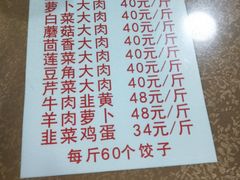 萝卜大肉 40元/斤
白菜大肉 40元/斤
蘑菇大肉 40元/斤
茴香大肉 40元/斤
莲菜大肉 40元/斤
豆角大肉 40元/斤
芹菜大肉 40元/斤
牛肉韭黄 48元/斤
羊肉萝卜 48元/斤
韭菜鸡蛋 34元/斤
每斤60个饺子